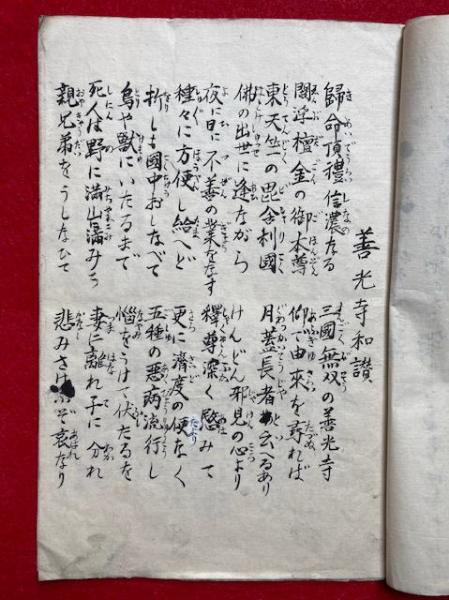 善光寺和讃
歸命頂禮信濃なる
三國無双の善光寺
閻浮檀金の御本尊
仰て由來を尋れば
東天竺の毘舎利國
月蓋長者と云へるあり
佛の出世に逢ながら
けんどん邪見の心より
夜に日に不善の業をなす
釋尊深く愍みて
種々に方便し給へど
更に濟度の便なく
折しも國中おしなべて
五種の悪病流行し
鳥や獣にいたるまで
悩をうけて伏たるを
死人は野に満山に満みち
妻に離れ子に分れ
親兄弟をうしなひて
悲みさけぶぞ哀なり